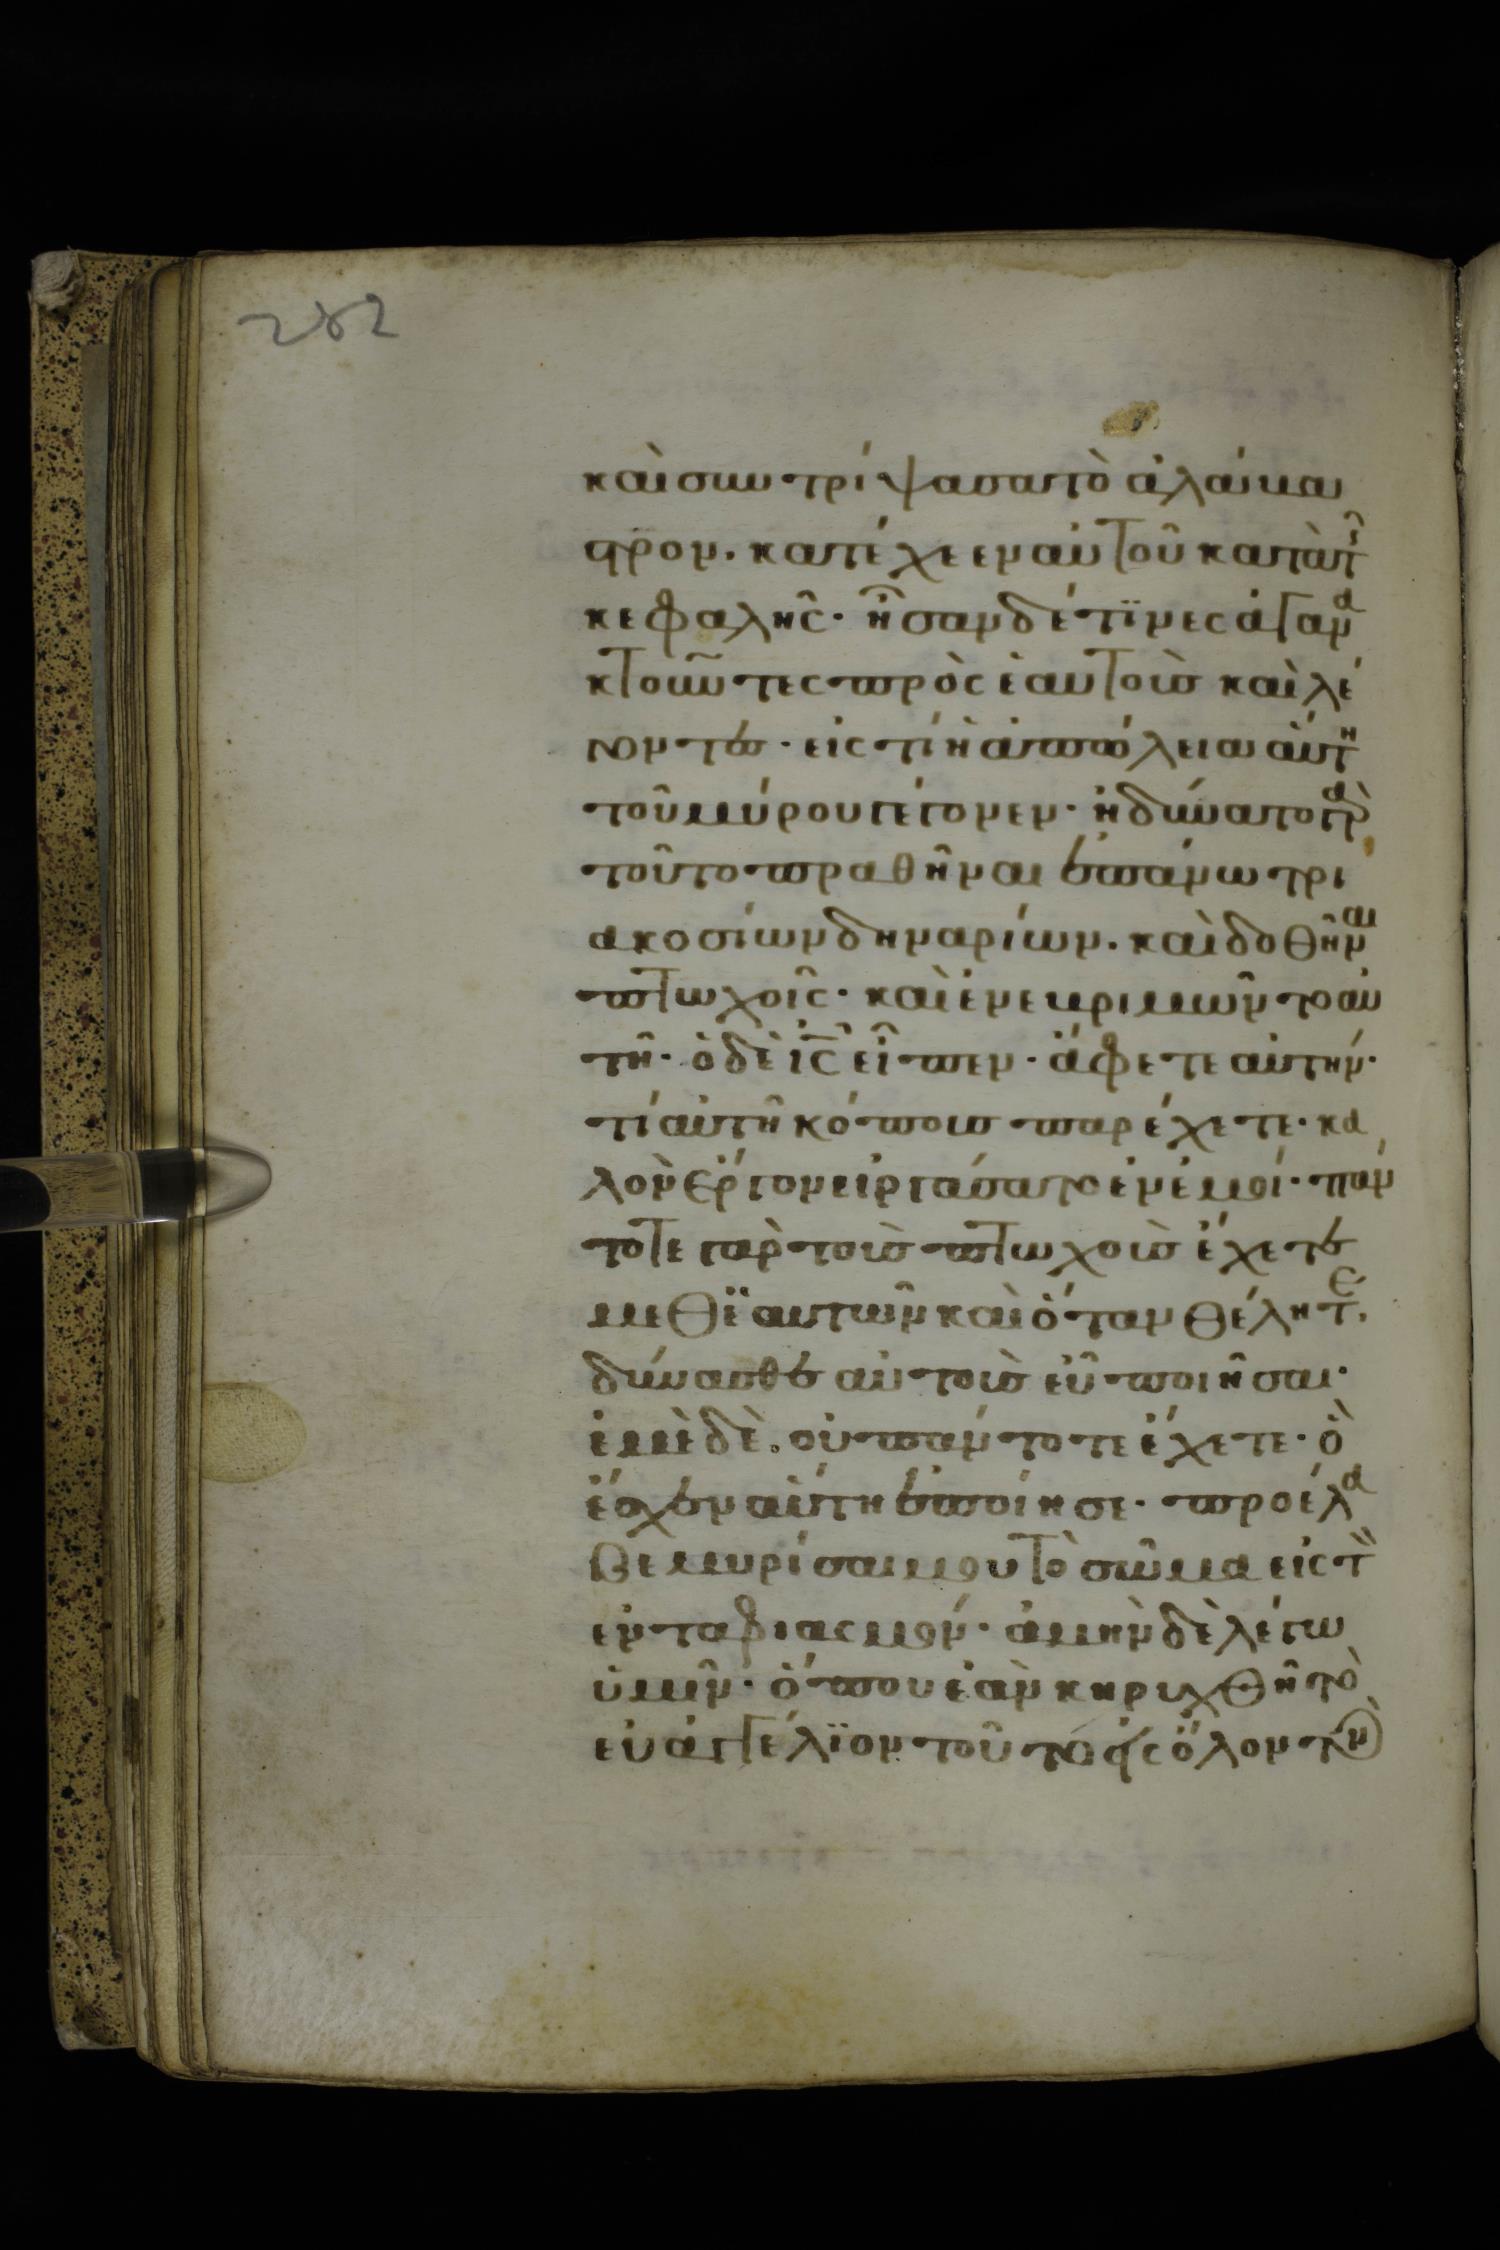 282
καὶ συντρίψασα τὸ ἀλάβα
στρον. κατέχεεν αὐτοῦ κατὰ τῆ
κεφαλῆς. ἦσαν δέ τϊνες ἀγανα
κτοῦντες πρὸς ἑαυτοὺς καὶ λέ
γοντες. εἰς τί ἡ ἀπώλεια αὕτη
τοῦ μύρου γέγονεν. ἠδύνατο γὰρ
τοῦτο πραθῆναι ἐπάνω τρι
ακοσίων δηναρίων. καὶ δοθῆναι
πτωχοῖς. καὶ ἐνεβριμῶντο αὐ
τῆ. ὁ δὲ ις εἶπεν. ἄφετε αὐτήν.
τί αὐτῆ κόπους παρέχετε. κα
λὸν ἔργον εἰργάσατο ἐν ἐμοί. πάν
τοτε γὰρ τοὺς πτωχοὺς ἔχετε
μεθ ἑαυτῶν καὶ ὅταν θέλητε.
δύνασθε αὐτοὺς εὖ ποιῆσαι.
ἐμὲ δὲ. οὐ πάντοτε ἔχετε. ὃ
ἔσχεν αὕτη ἐποίησε. προέλα
βε μυρίσαι μου τὸ σῶμα εἰς τὸ
ενταφιασμόν. ἀμὴν δὲ λέγω
ὑμῖν. ὅπου ἐὰν κηρυχθῆ τὸ
εὐαγγέλϊον τοῦτο εἰς ὅλον τὸν